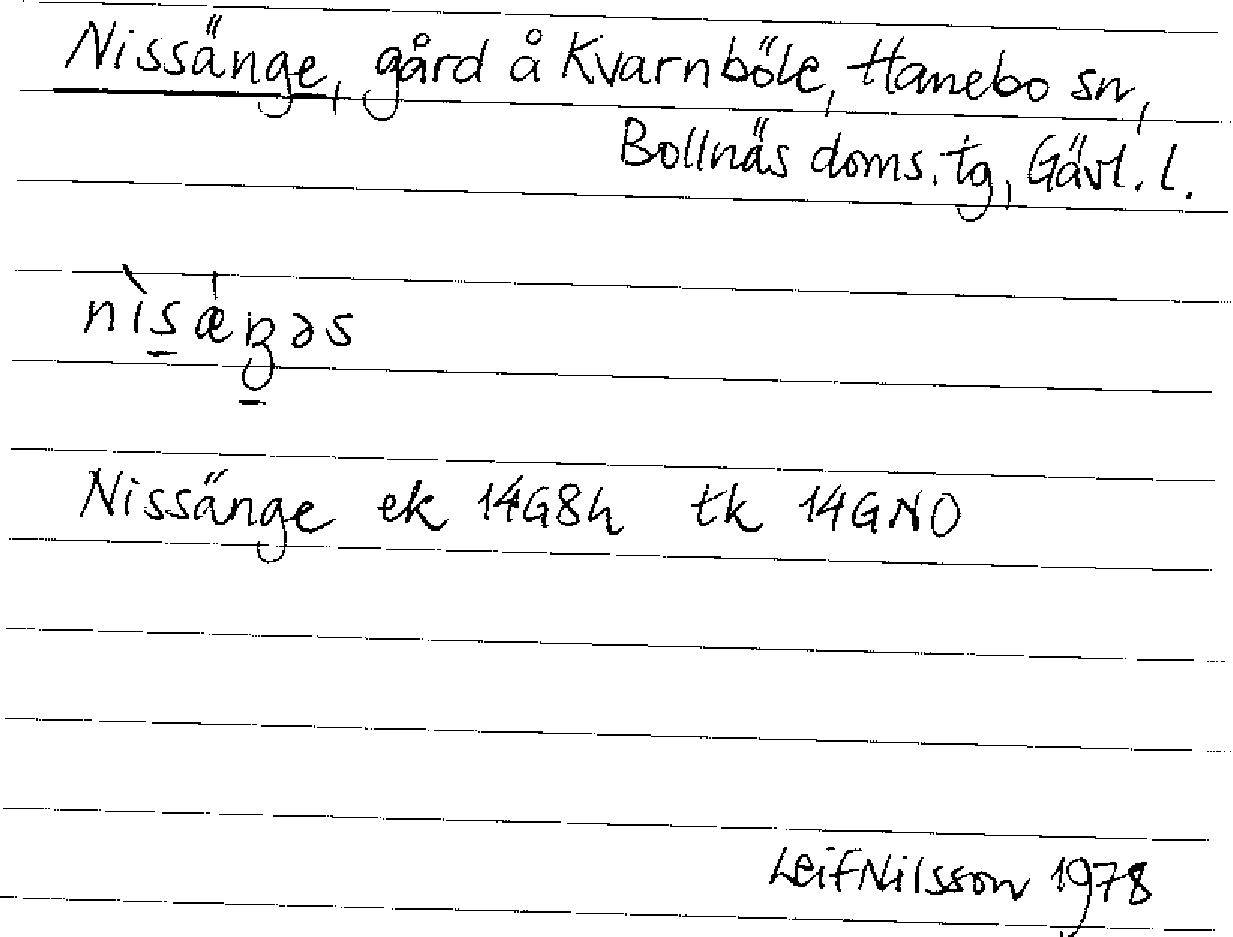 Nissänge, gård å Kvarnböle, Hanebo sn,
Bollnäs doms. tg, Gävl. l.
nìsǽŋəs
Nissänge ek 14G8h tk 14GNO
Leif Nilsson 1978